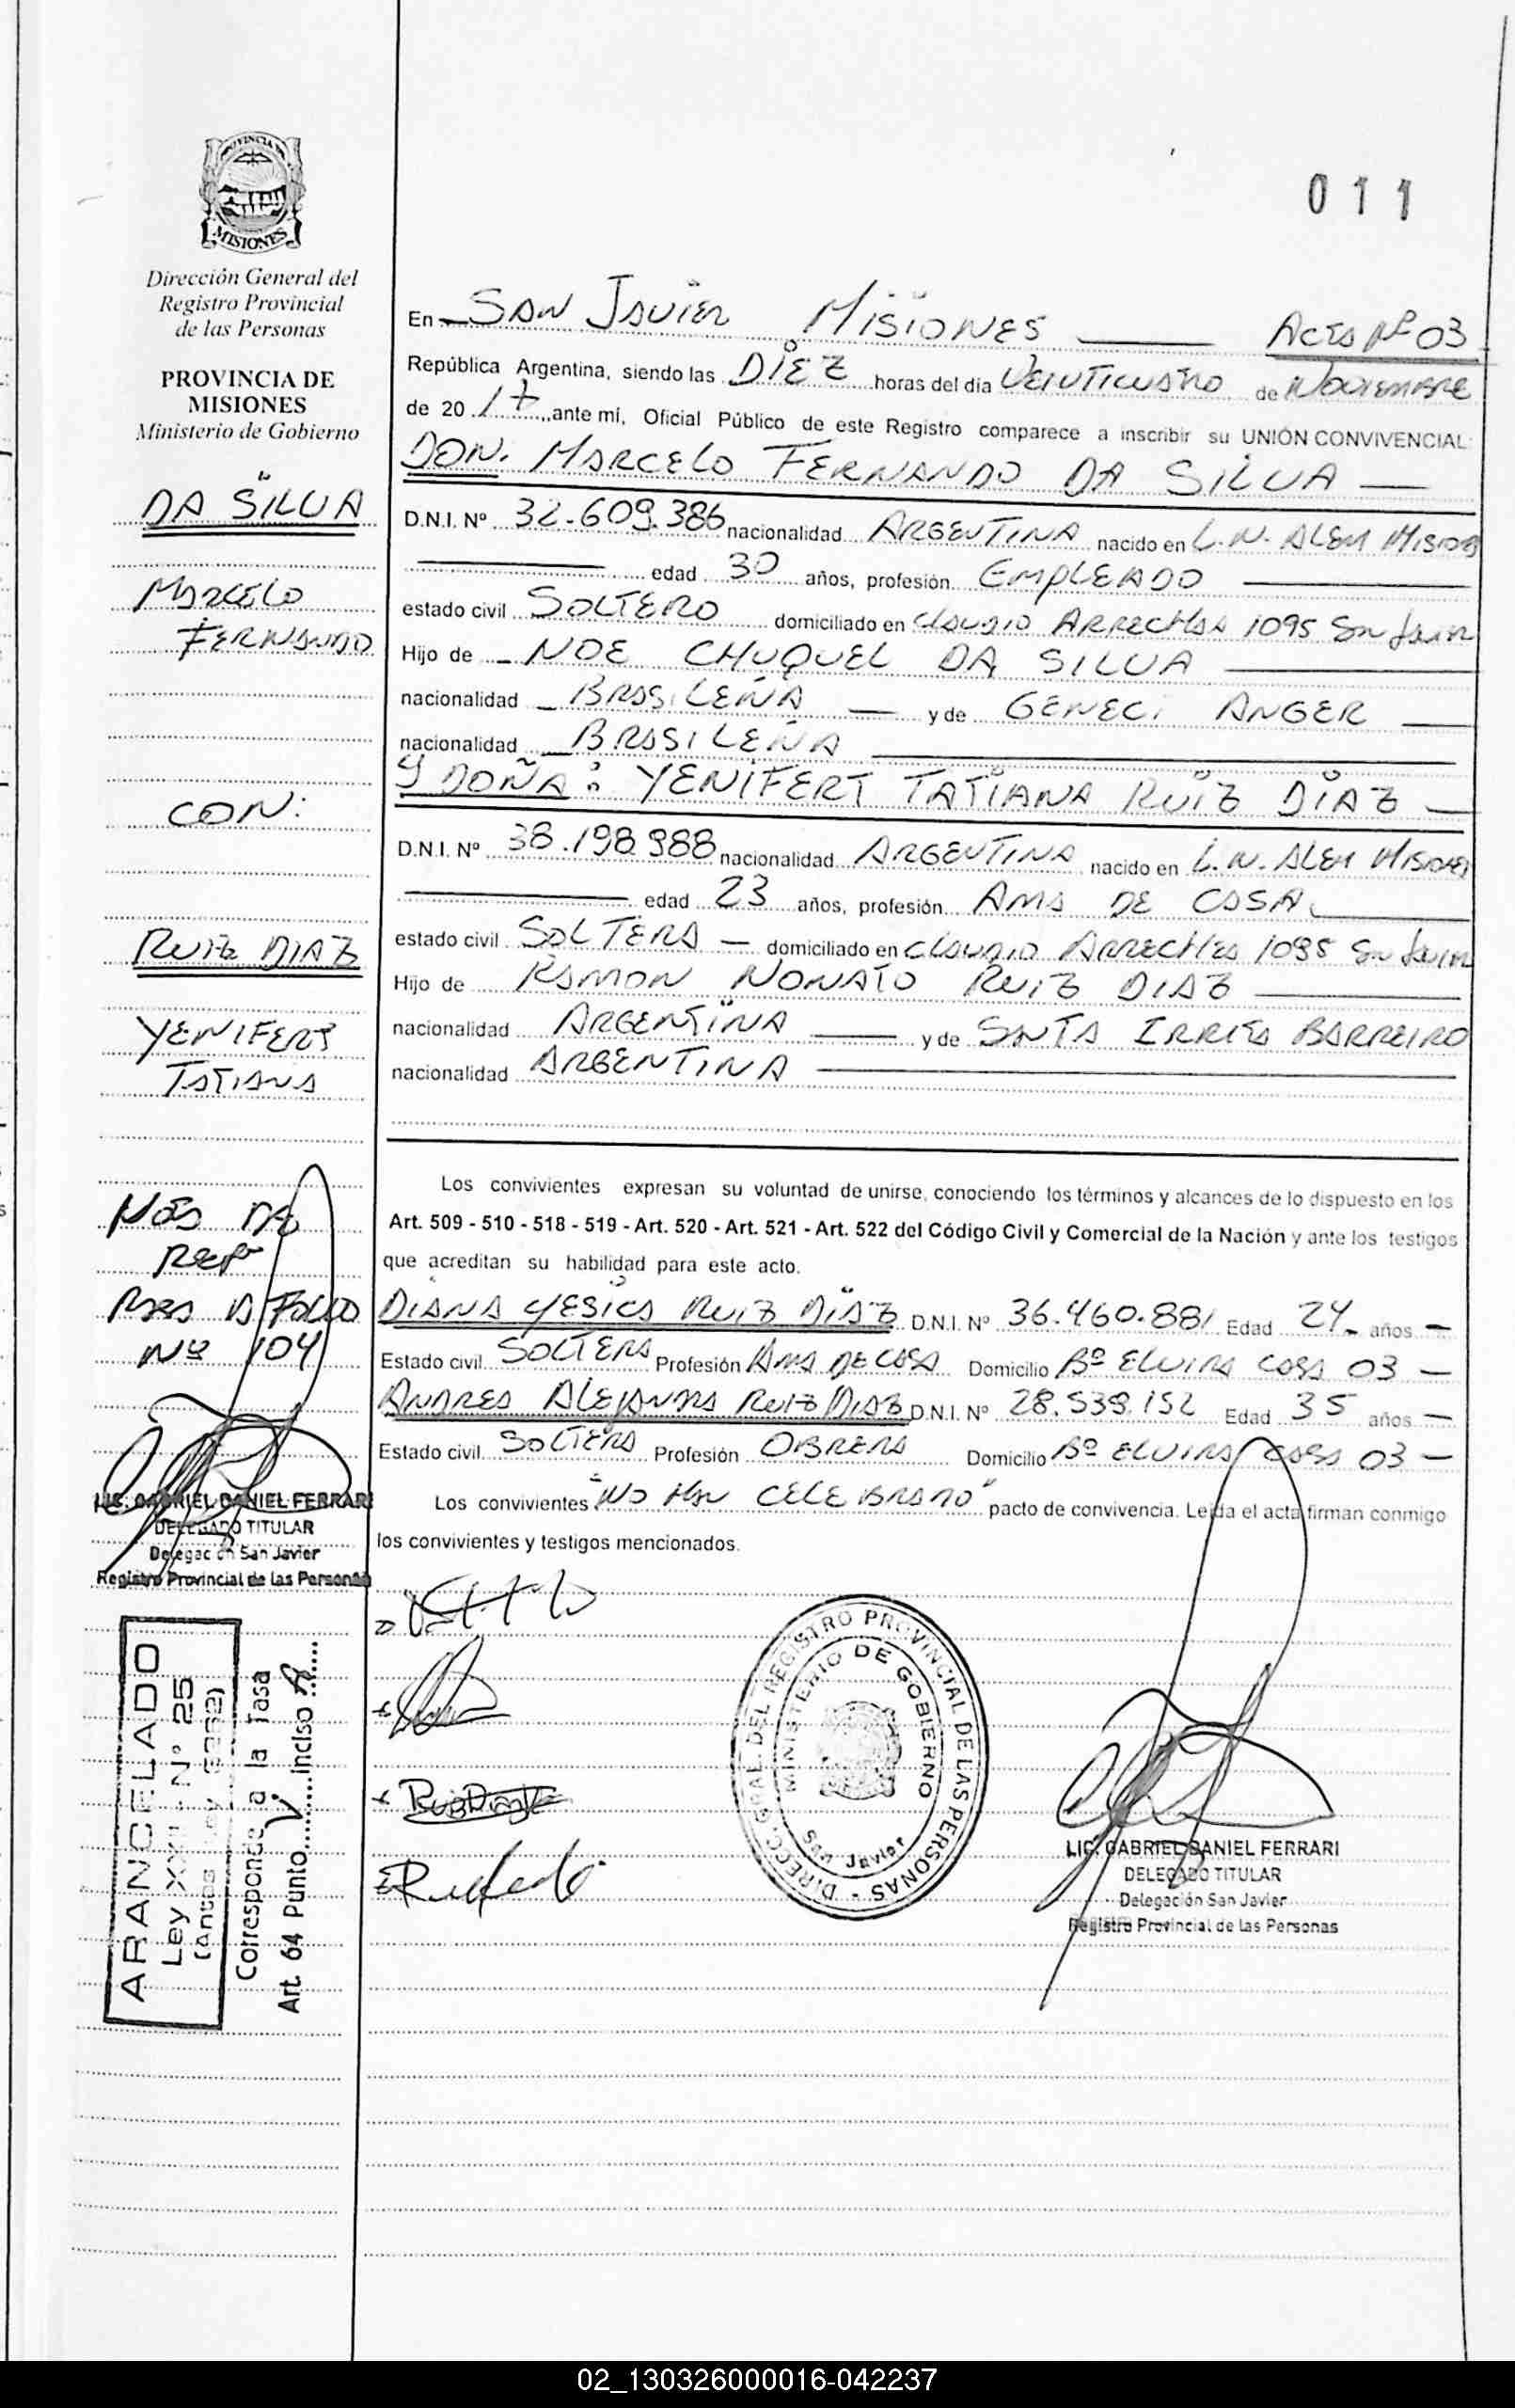 PROVINCIA DE
MISIONES
Dirección General del
Registro Provincial
de las Personas
PROVINCIA DE
MISIONES
Ministerio de Gobierno
DA SILVA
MARCELO
FERNANDO
CON:
RUIZ DIAZ
YENIFERT
TATIANA
PASA A FOLIO
Nº 104
LIC. GABRIEL DANIEL FERRARI
DELEGADO TITULAR
Delegación San Javier
Registro Provincial de las Personas
ARANCELADO
Ley XXII - N° 25
Corresponde a la Tasa
Art. 64 Punto V inciso A
011
En SAN JAVIER MISIONES ACTA Nº 03
República Argentina, siendo las DIEZ horas del día VEINTICUATRO de NOVIEMBRE
de 2017, ante mí, Oficial Público de este Registro comparece a inscribir su UNIÓN CONVIVENCIAL:
DON. MARCELO FERNANDO DA SILVA
D.N.I. Nº 32.609.386 nacionalidad ARGENTINA nacido en L.N. ALEM MISIONES
edad 30 años, profesión EMPLEADO
estado civil SOLTERO domiciliado en CLAUDIO ARRECHEA 1095 San Javier
Hijo de NOE CHUQUEL DA SILVA
nacionalidad BRASILEÑA y de GENECI ANGER
nacionalidad BRASILEÑA
Y DOÑA: YENIFERT TATIANA RUIZ DIAZ
D.N.I. Nº 38.198.988 nacionalidad ARGENTINA nacido en L.N. ALEM MISIONES
edad 23 años, profesión AMA DE CASA
estado civil SOLTERA domiciliado en CLAUDIO ARRECHEA 1095 San Javier
Hijo de RAMON NONATO RUIZ DIAZ
nacionalidad ARGENTINA y de SANTA IRRITA BARREIRO
nacionalidad ARGENTINA
Los convivientes expresan su voluntad de unirse, conociendo los términos y alcances de lo dispuesto en los
Art. 509 - 510 - 518 - 519 - Art. 520 - Art. 521 - Art. 522 del Código Civil y Comercial de la Nación y ante los testigos
que acreditan su habilidad para este acto.
DIANA YESICA RUIZ DIAZ D.N.I. Nº 36.460.881 Edad 24 años
Estado civil SOLTERA Profesión AMA DE CASA Domicilio Bº ELVIRA CASA 03
ANDREA ALEJANDRA RUIZ DIAZ D.N.I. Nº 28.539.152 Edad 35 años
Estado civil SOLTERA Profesión OBRERA Domicilio Bº ELVIRA CASA 03
Los convivientes "NO HAN CELEBRADO" pacto de convivencia. Leída el acta firman conmigo
los convivientes y testigos mencionados.
DIRECC. GRAL. DEL REGISTRO PROVINCIAL DE LAS PERSONAS -
MINISTERIO DE GOBIERNO
San Javier
LIC. GABRIEL DANIEL FERRARI
DELEGADO TITULAR
Delegación San Javier
Registro Provincial de las Personas
02_130326000016-042237